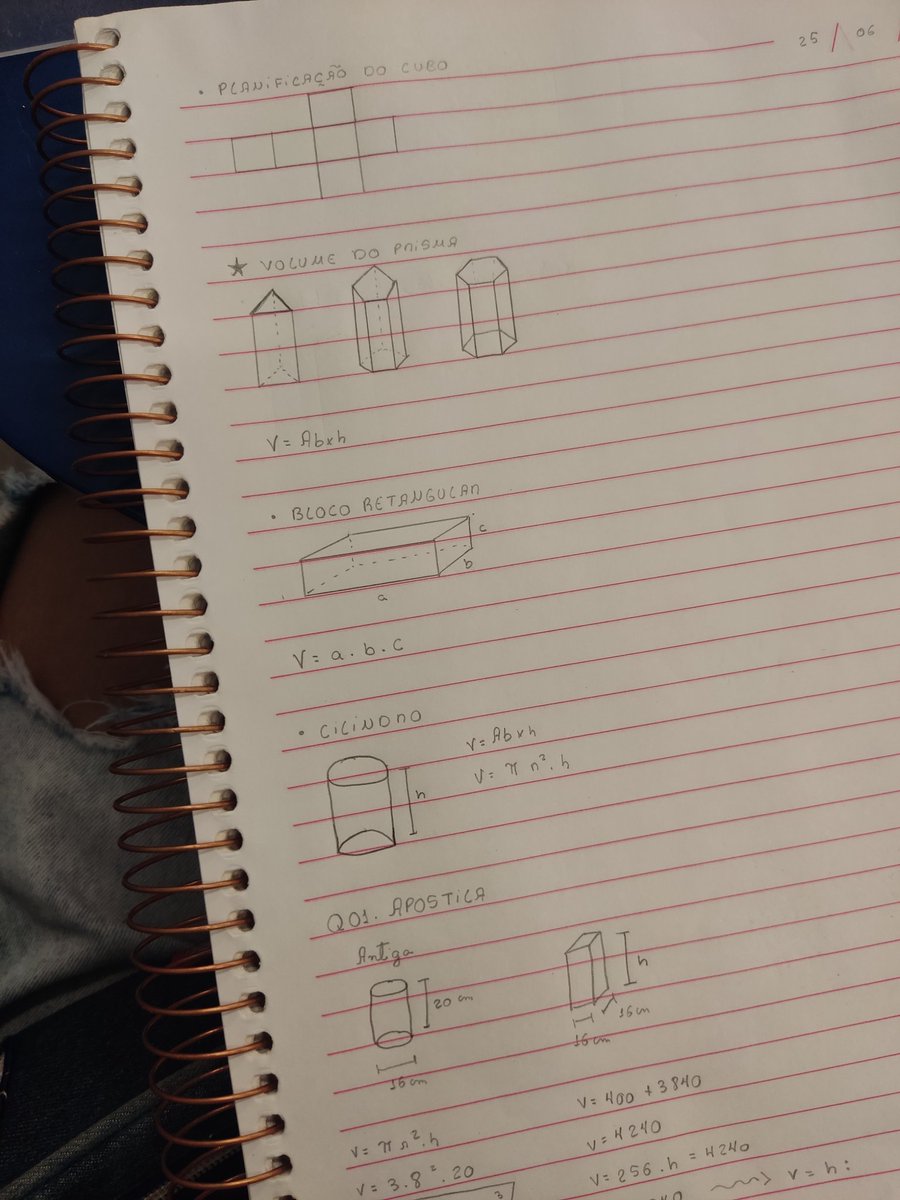 25 / 06 /
• PLANIFICAÇÃO DO CUBO
★ VOLUME DO PRISMA
V = Abxh
• BLOCO RETANGULAR
c
b
a
V = a . b . c
• CILINDRO
V = Abxh
V = π r² . h
h
Q01. APOSTILA
Antiga
20 cm
16 cm
h
16 cm
16 cm
V = π r² . h
V = 3 . 8² . 20
V = 400 + 3840
V = 4240
V = 256 . h = 4240
V = h :